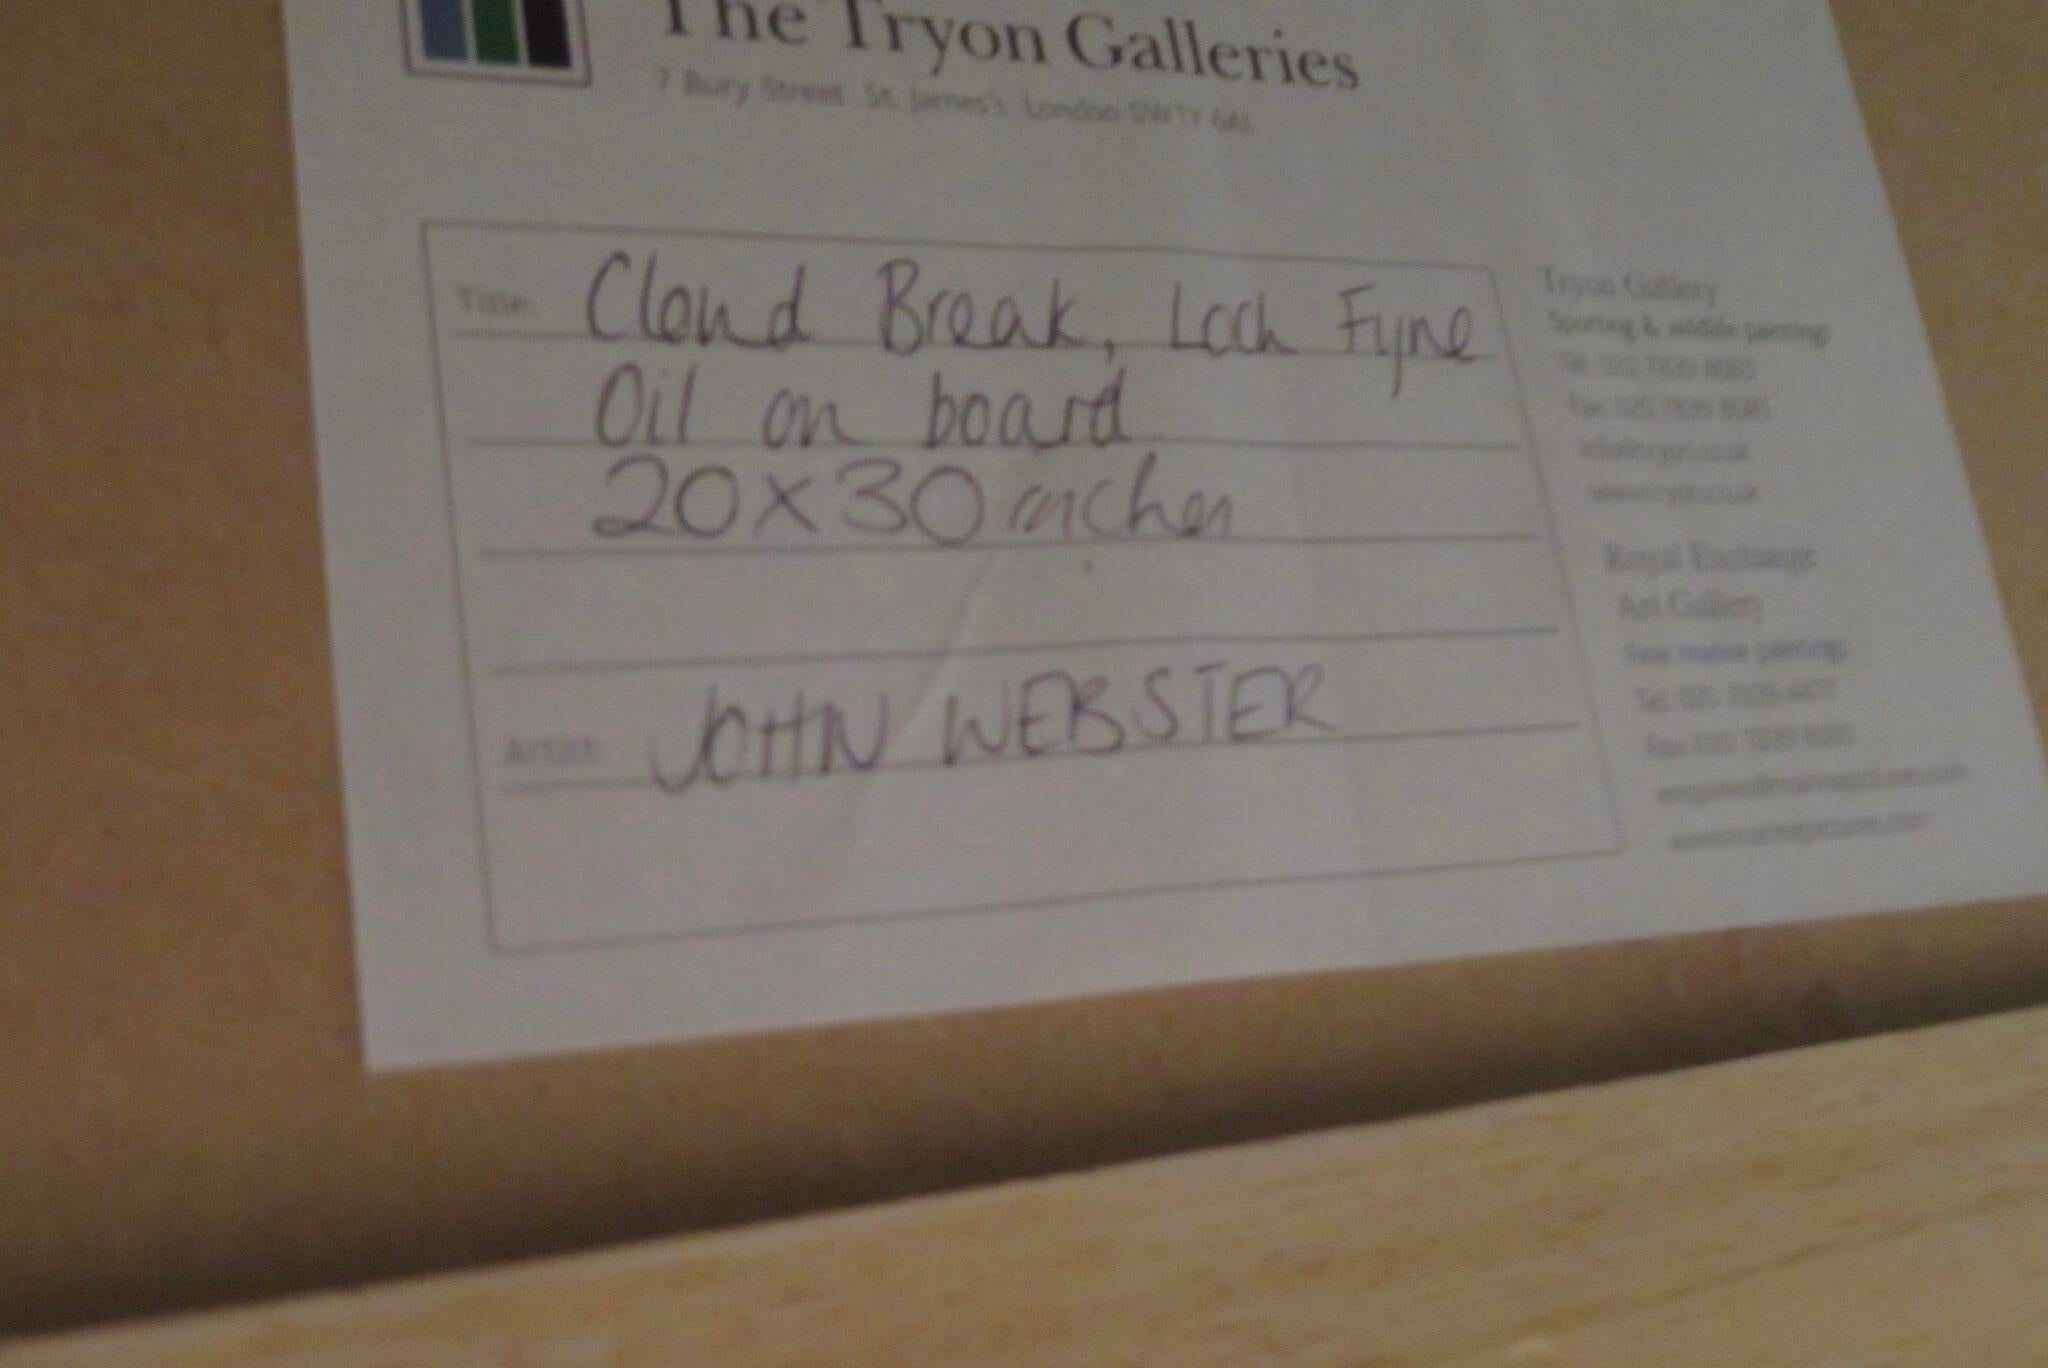 The Tryon Galleries
7 Bury Street St. James's London SW1Y 6AL
Title: Cloud Break, Loch Fyne
Oil on board
20 x 30 inches
Artist: JOHN WEBSTER
Tryon Gallery
Sporting & wildlife paintings
Tel: 020 7839 8083
Fax: 020 7839 8085
info@tryon.co.uk
www.tryon.co.uk
Royal Exchange
Art Gallery
Fine marine paintings
Tel: 020 7839 4477
Fax: 020 7839 8085
enquiries@marinepictures.com
www.marinepictures.com